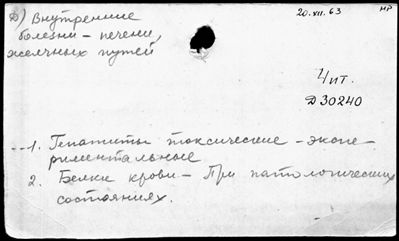 20.XII.63
НР
д) Внутренние
болезни - печени,
желчных путей
Чит.
Д30240
1. Гепатиты токсические - экспе-
риментальные
2. Белки крови - При патологических
состояниях.